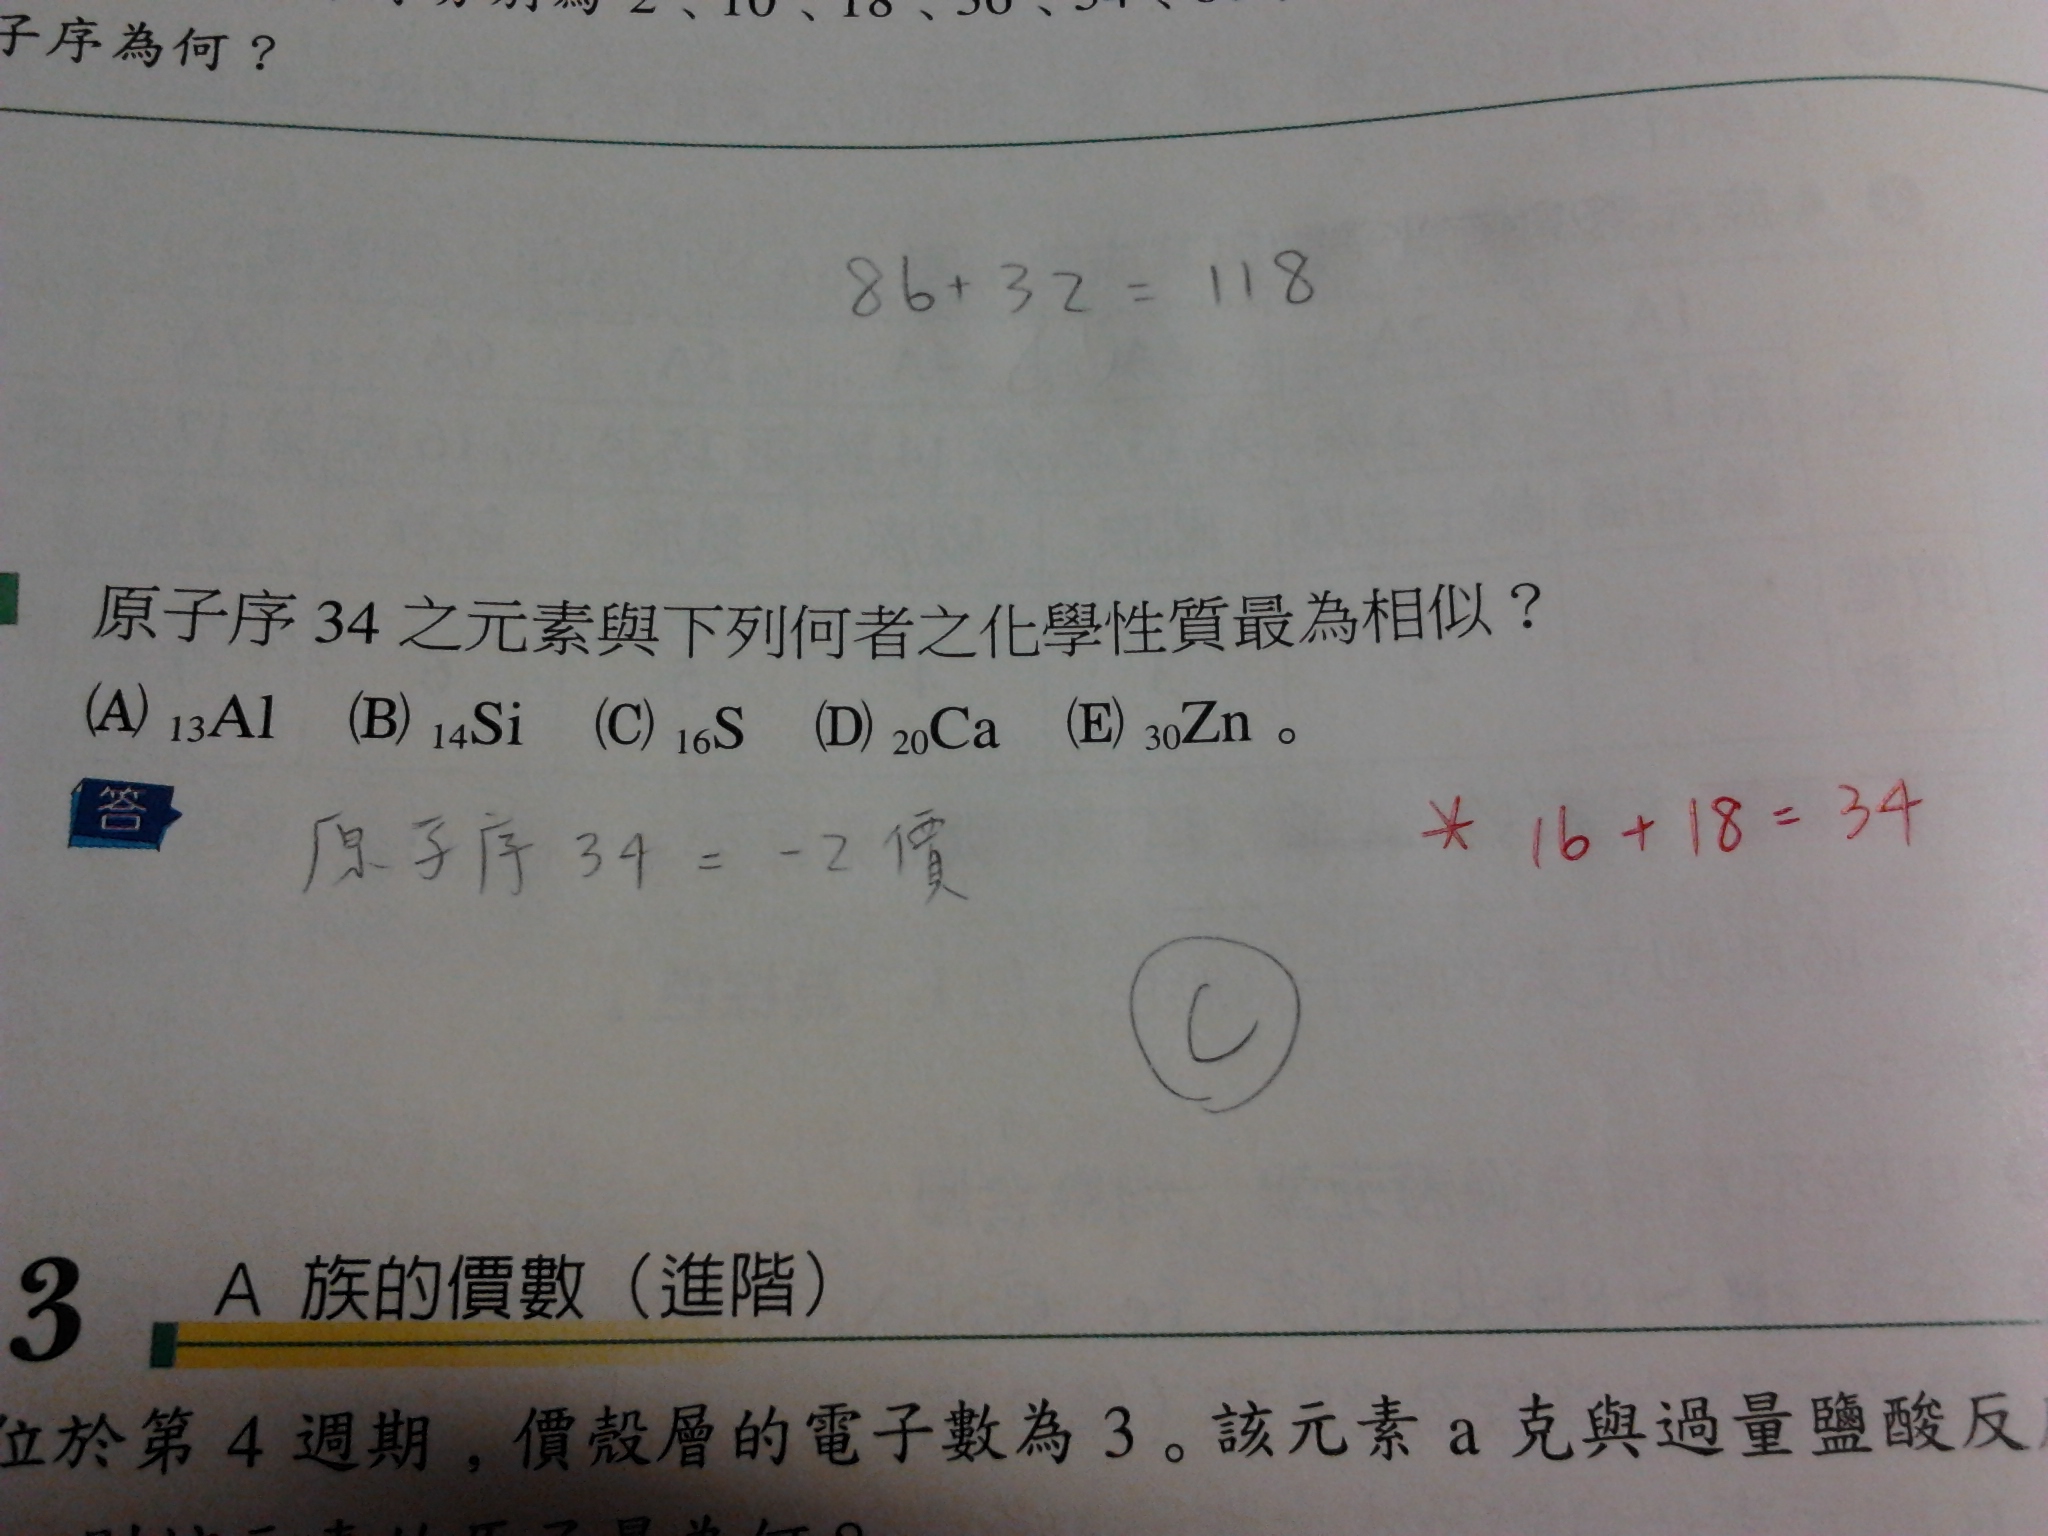 2、10、18、36、54、
子序為何？
86+32=118
原子序 34 之元素與下列何者之化學性質最為相似？
(A) ₁₃Al (B) ₁₄Si (C) ₁₆S (D) ₂₀Ca (E) ₃₀Zn。
答 原子序 34 = -2 價
* 16+18=34
C
3 A 族的價數（進階）
位於第 4 週期，價殼層的電子數為 3。該元素 a 克與過量鹽酸反